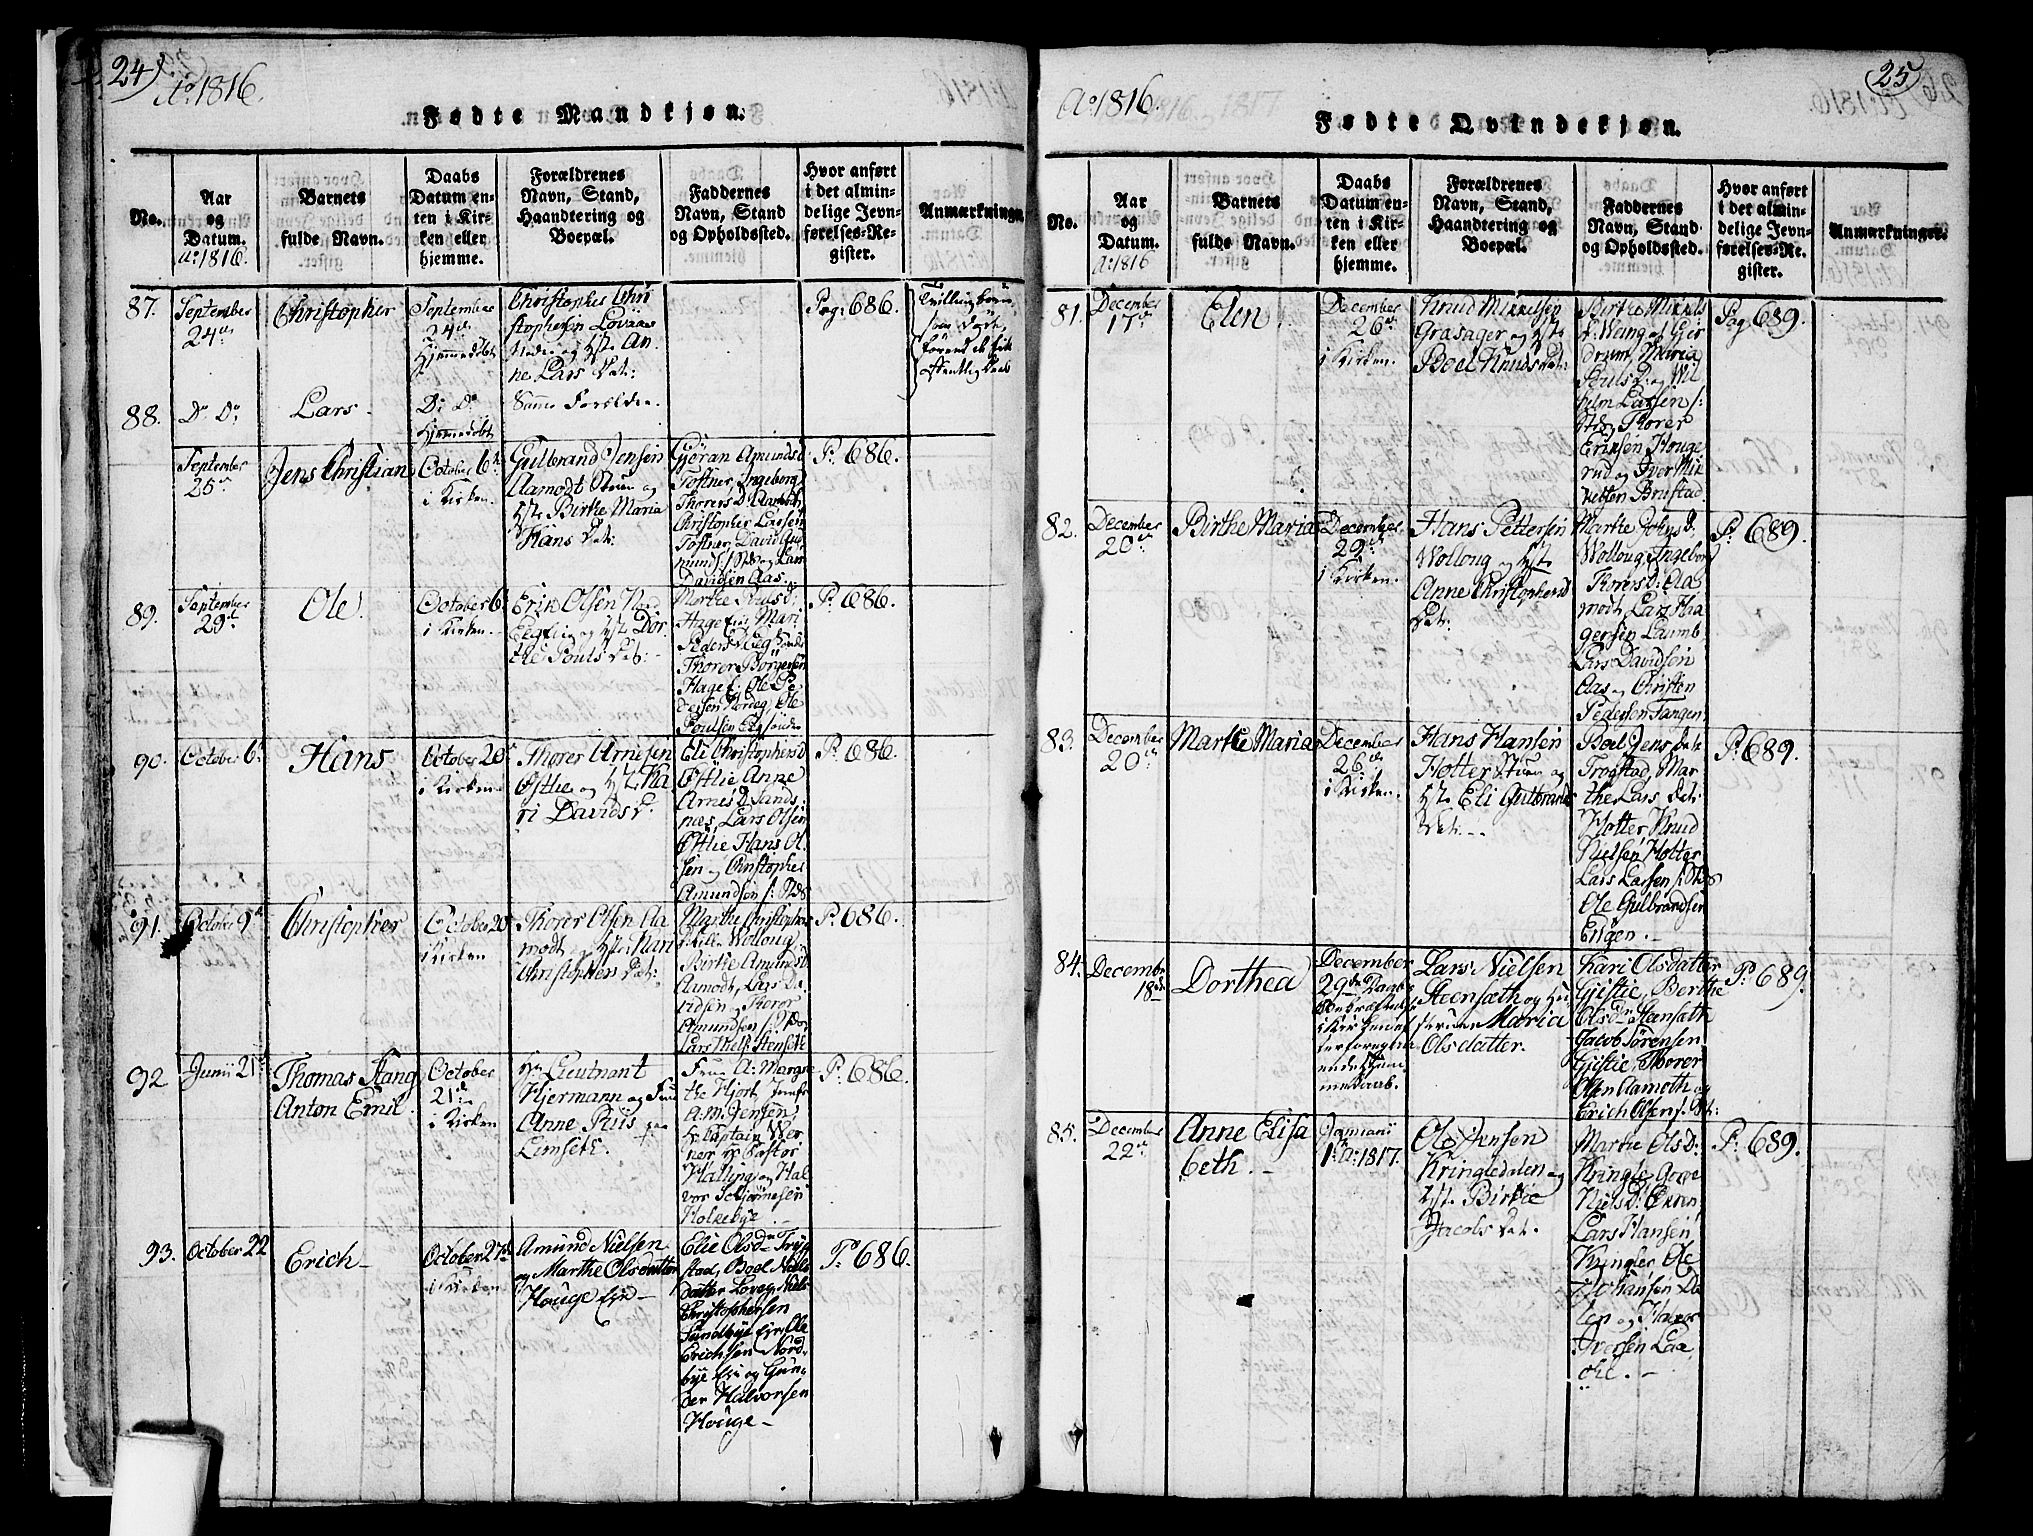 24)
Ao 1816.
Fødte Mandkjøn.
No.
Aar
og
Datum.
a: 1816.
Barnets
fulde Navn.
Daabs
Datum en-
ten i Kir-
ken eller
hjemme.
Forældrenes
Navn, Stand,
Haandtering og
Boepæl.
Faddernes
Navn, Stand
og Opholdssted.
Hvor anført
i det almin-
delige Jevn-
førelses-Re-
gister.
Anmærkninger.
87.
September
24de
Christopher
September
24de
Hjemmedøbt
Christopher Chri
stophersen
og Hst. An
ne Lars Dat:
Pag: 686.
Tvillingbørn
som døde
førend de fik
88.
Do Do
Lars
Do Do
Hjemmedøbt
Samme Forældre.
September
25de
Jens Christian
October 6te
i Kirken.
Gulbrand Jensen
Aamodt Stuen og
Hst. Birthe Maria
Hans Dat:
Gjøran Amundsd.
Toftner, Ingeborg
Thorers D. Aamodt,
Christopher Larsen
Toftner, David Am
unds: og Lars
Davidsen Aas.
P: 686.
89.
September
29de
Ole.
October 6te
i Kirken.
Erik Olsen
og Hst. Dor
the Pouls Dat:
Marthe Pouls d:
Hage Eie, Mari
Peders D.
Thorer Borgersen
Hage E: Ole Pe
dersen Nordeg, Ole
Poulsen
P: 686.
90.
October 6te
Hans
October 20de
i Kirken
Thorer Arnesen
Østlie og Hst. Ka
ri Davids D:
Eli Christophersd.
Østlie Anne
Arnes D. Sands
næs, Lars Olsen
Østlie Hans Ol
sen og Christopher
Amundsen
P: 686.
91.
October 9de
Christopher
October 20de
i Kirken
Thorer Olsen Aa
modt og Hst. Kari
Christophers Dat:
Marthe Christophers
Wollong
Birthe Amunds D.
Aamodt, Lars Da
vidsen, Thorer
Amundsen
Lars Niels: Stenseth
P: 686.
92
Junii 21de
Thomas Stang
Anton Emil.
October
21de
i Kirken
Hr. Lieutnant
Hjermann og Frue
Anne Riis paa
Linseth.
Frue A: Margre
the Hjort, Jomfr
A: M: Jensen
Hr. Captain Wer
ner Hr Pastor
Halling og Hal
vor Schjønnesen
Holkebye.
P: 686.
93.
October 22
Erich
October 27de
i Kirken
Amund Nielsen
og Marthe Olsdatter
Houge Eje
Elie Olsdr Tryg
stad, Boel Niels
datter Loveg, Niels
Christophersen
Sundbye Eje, Ole
Erichsen Nord-
bye Eje og Gun-
der Halvorsen
Houge
P: 686.
25.
Ao 1816.
Fødte Qvindekjøn.
No.
Aar
og
Datum.
A: 1816
Barnets
fulde Navn.
Daabs
Datum en-
ten i Kir-
ken eller
hjemme.
Forældrenes
Navn, Stand,
Haandtering og
Boepæl.
Faddernes
Navn, Stand
og Opholdssted.
Hvor anført
i det almin-
delige Jevn-
førelses-Re-
gister.
Anmærkninger.
81.
December
17de
Elen.
December
26de
i Kirken.
Knud Mikkelsen
Grasager og Hst.
Boel Knuds Dat:
Birthe Mikkels
D. Weng af Gjer
drum, Maria
Pouls D: og Wil
helm Larsen
Thorer
Eriksen Houge
rud og Iver Mik
kelsen Brustad
Pag: 689.
82.
December
20de
Birthe Maria
December
29de
i Kirken.
Hans Pettersen
Wollong og Hst.
Anne Christophersd
Dat:
Marthe Johns D.
Wollong, Ingeborg
Thorers D: Aa
modt, Lars Haa
gensen Laumb
Lars Davidsen
Aas og Christen
Pedersen Tangen
P: 689.
83.
December
20de
Marthe Maria
December
26de
i Kirken.
Hans Hansen
Hotter Stuen og
Hst. Eli Gulbrands
Dat:
Boel Jens Dat:
Trogstad, Mar
the Lars Dat:
Hotter, Knud
Nielsen Hotter
Lars Larsen
Ole Gulbrandsen
Engen.
P: 689.
84.
December
18de
Dorthea
December
29de Daab
i Kirken
hjem
medaab.
Lars Nielsen
Steensæth og Hu
struen Maria
Olsdatter.
Kari Olsdatter
Gistie, Berthe
Olsdr Steensæth
Jacob Sørensen
Gistie, Thorer
Olsen Aamoth og
Erich Olsen
P: 689.
85.
December
22de
Anne Elisa
beth.
Januarii
1. A: 1817.
Ole Jensen
Kringledalen og
Hst. Birthe
Jacobs Dat.
Marthe Ols D:
Kringler
Niels D: Ekren
Lars Hansen
Kringler Ole
Johansen Da
len og Halvor
Iversen Laa
che.
P: 689.